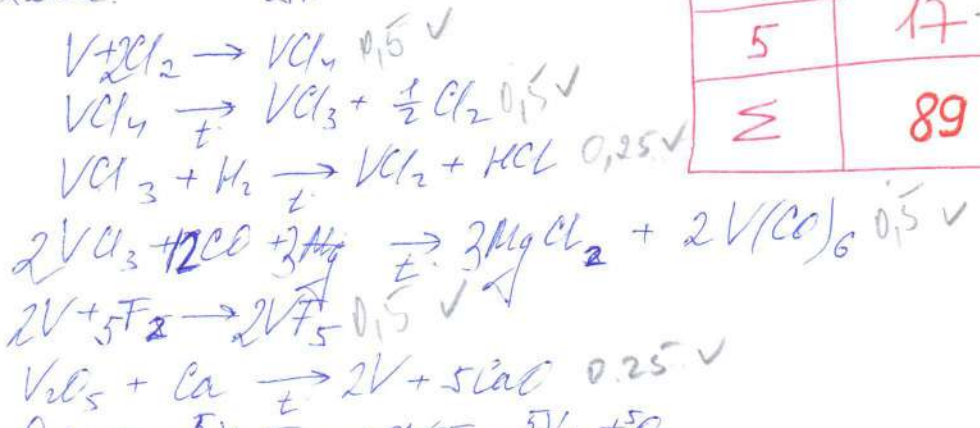 5 17
Σ 89
V+2Cl₂ → VCl₄ 0,5 V
VCl₄ →t VCl₃ + ½ Cl₂ 0,5 V
VCl₃ + H₂ →t VCl₂ + HCl 0,25 V
2VCl₃ + 12CO + 3Mg →t 3MgCl₂ + 2V(CO)₆ 0,5 V
2V + 5F₂ → 2VF₅ 0,5 V
V₂O₅ + Ca →t 2V + 5CaO 0.25 V